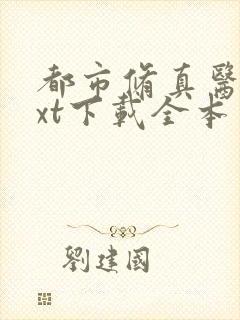 都市脩真醫
xt下載全本
劉建國